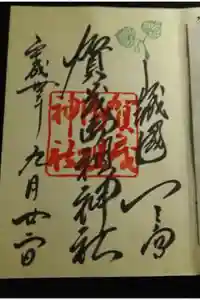 山城國一之宮
賀茂御祖神社
賀茂
御祖
神社
平成廿年九月廿